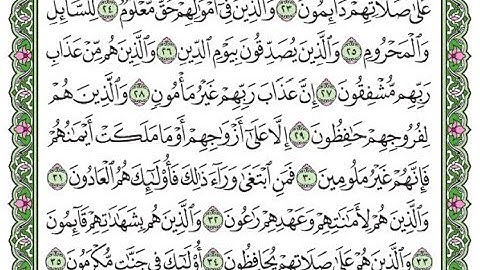 عَلَىٰ صَلَاتِهِمْ دَآئِمُونَ ٢٣ وَٱلَّذِينَ فِىٓ أَمْوَٰلِهِمْ حَقٌّ مَّعْلُومٌ ٢٤ لِّلسَّآئِلِ
وَٱلْمَحْرُومِ ٢٥ وَٱلَّذِينَ يُصَدِّقُونَ بِيَوْمِ ٱلدِّينِ ٢٦ وَٱلَّذِينَ هُم مِّنْ عَذَابِ
رَبِّهِم مُّشْفِقُونَ ٢٧ إِنَّ عَذَابَ رَبِّهِمْ غَيْرُ مَأْمُونٍ ٢٨ وَٱلَّذِينَ هُمْ
لِفُرُوجِهِمْ حَٰفِظُونَ ٢٩ إِلَّا عَلَىٰٓ أَزْوَٰجِهِمْ أَوْ مَا مَلَكَتْ أَيْمَٰنُهُمْ
فَإِنَّهُمْ غَيْرُ مَلُومِينَ ٣٠ فَمَنِ ٱبْتَغَىٰ وَرَآءَ ذَٰلِكَ فَأُو۟لَٰٓئِكَ هُمُ ٱلْعَادُونَ ٣١
وَٱلَّذِينَ هُمْ لِأَمَٰنَٰتِهِمْ وَعَهْدِهِمْ رَٰعُونَ ٣٢ وَٱلَّذِينَ هُم بِشَهَٰدَٰتِهِمْ قَآئِمُونَ
٣٣ وَٱلَّذِينَ هُمْ عَلَىٰ صَلَاتِهِمْ يُحَافِظُونَ ٣٤ أُو۟لَٰٓئِكَ فِى جَنَّٰتٍ مُّكْرَمُونَ ٣٥